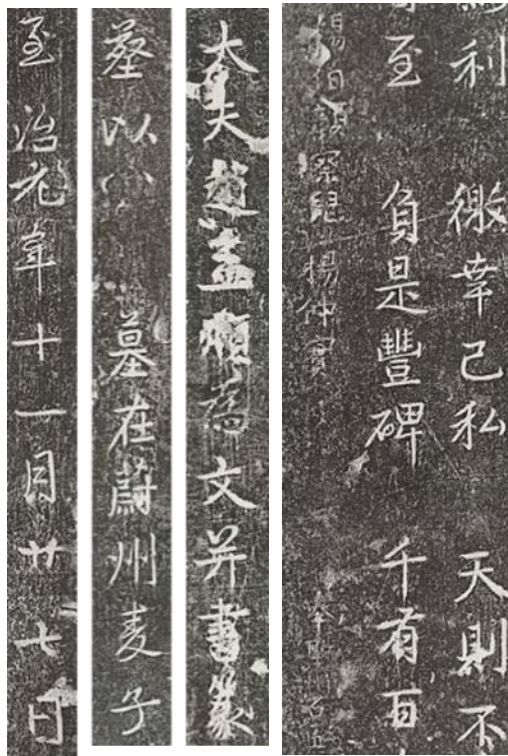 利 徼幸己私 天則不
至 負是豐碑 千有百
察兒 楊仲實
大夫趙孟頫為文并書篆
葬以 墓在蔚州麦子
至治元年十一月廿七日